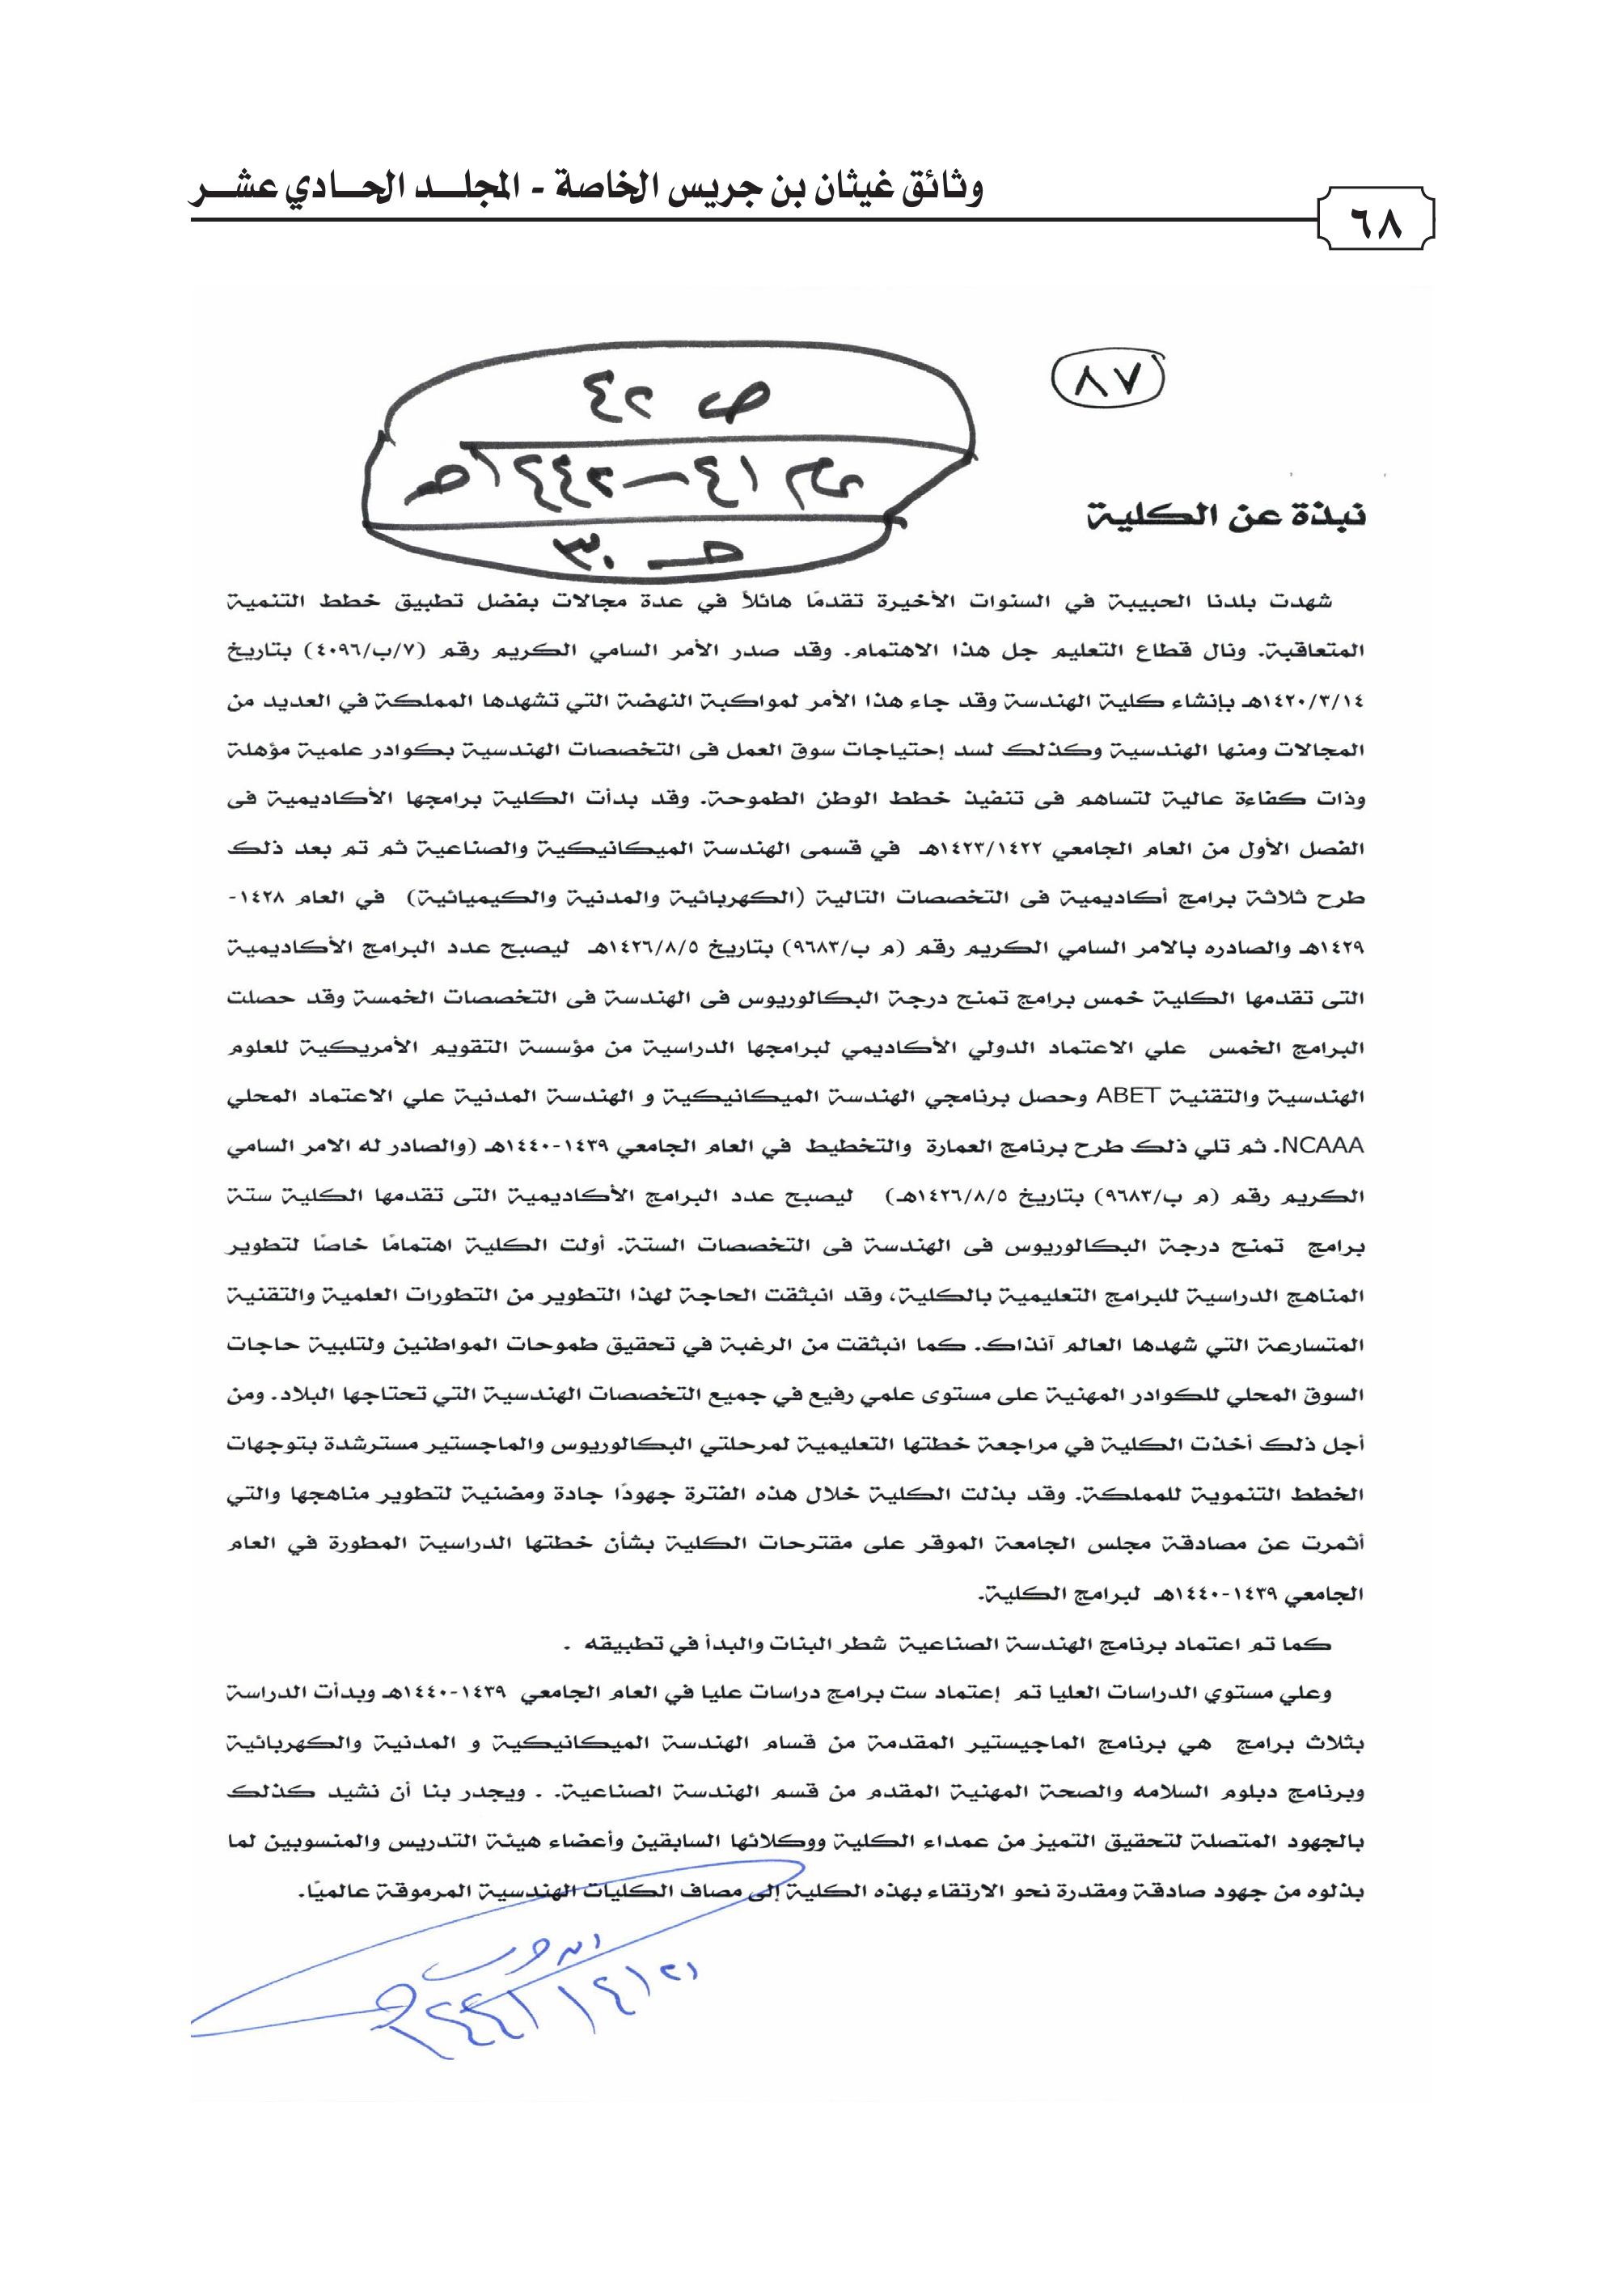 وثائق غيثان بن جريس الخاصة - المجلد الحادي عشر
٦٨
٨٧
ص ٤٢
عام ٤١ – ١٤٤٢هـ
حـ ٣٠
نبذة عن الكلية
شهدت بلدنا الحبيبة في السنوات الأخيرة تقدمًا هائلاً في عدة مجالات بفضل تطبيق خطط التنمية
المتعاقبة. ونال قطاع التعليم جل هذا الاهتمام. وقد صدر الأمر السامي الكريم رقم (٧/ب/٤٠٩٦) بتاريخ
١٤٢٠/٣/١٤هـ بإنشاء كلية الهندسة وقد جاء هذا الأمر لمواكبة النهضة التي تشهدها المملكة في العديد من
المجالات ومنها الهندسية وكذلك لسد إحتياجات سوق العمل فى التخصصات الهندسية بكوادر علمية مؤهلة
وذات كفاءة عالية لتساهم فى تنفيذ خطط الوطن الطموحة. وقد بدأت الكلية برامجها الأكاديمية فى
الفصل الأول من العام الجامعي ١٤٢٣/١٤٢٢هـ في قسمى الهندسة الميكانيكية والصناعية ثم تم بعد ذلك
طرح ثلاثة برامج أكاديمية فى التخصصات التالية (الكهربائية والمدنية والكيميائية) في العام ١٤٢٨-
١٤٢٩هـ والصادره بالامر السامي الكريم رقم (م ب/٩٦٨٣) بتاريخ ١٤٢٦/٨/٥هـ ليصبح عدد البرامج الأكاديمية
التى تقدمها الكلية خمس برامج تمنح درجة البكالوريوس فى الهندسة فى التخصصات الخمسة وقد حصلت
البرامج الخمس علي الاعتماد الدولي الأكاديمي لبرامجها الدراسية من مؤسسة التقويم الأمريكية للعلوم
الهندسية والتقنية ABET وحصل برنامجي الهندسة الميكانيكية و الهندسة المدنية علي الاعتماد المحلي
NCAAA. ثم تلي ذلك طرح برنامج العمارة والتخطيط في العام الجامعي ١٤٣٩-١٤٤٠هـ (والصادر له الامر السامي
الكريم رقم (م ب/٩٦٨٣) بتاريخ ١٤٢٦/٨/٥هـ) ليصبح عدد البرامج الأكاديمية التى تقدمها الكلية ستة
برامج تمنح درجة البكالوريوس فى الهندسة فى التخصصات الستة. أولت الكلية اهتمامًا خاصًا لتطوير
المناهج الدراسية للبرامج التعليمية بالكلية، وقد انبثقت الحاجة لهذا التطوير من التطورات العلمية والتقنية
المتسارعة التي شهدها العالم آنذاك. كما انبثقت من الرغبة في تحقيق طموحات المواطنين ولتلبية حاجات
السوق المحلي للكوادر المهنية على مستوى علمي رفيع في جميع التخصصات الهندسية التي تحتاجها البلاد. ومن
أجل ذلك أخذت الكلية في مراجعة خطتها التعليمية لمرحلتي البكالوريوس والماجستير مسترشدة بتوجهات
الخطط التنموية للمملكة. وقد بذلت الكلية خلال هذه الفترة جهودًا جادة ومضنية لتطوير مناهجها والتي
أثمرت عن مصادقة مجلس الجامعة الموقر على مقترحات الكلية بشأن خطتها الدراسية المطورة في العام
الجامعي ١٤٣٩-١٤٤٠هـ لبرامج الكلية.
كما تم اعتماد برنامج الهندسة الصناعية شطر البنات والبدأ في تطبيقه .
وعلي مستوي الدراسات العليا تم إعتماد ست برامج دراسات عليا في العام الجامعي ١٤٣٩-١٤٤٠هـ وبدأت الدراسة
بثلاث برامج هي برنامج الماجيستير المقدمة من قسام الهندسة الميكانيكية و المدنية والكهربائية
وبرنامج دبلوم السلامه والصحة المهنية المقدم من قسم الهندسة الصناعية. . ويجدر بنا أن نشيد كذلك
بالجهود المتصلة لتحقيق التميز من عمداء الكلية ووكلائها السابقين وأعضاء هيئة التدريس والمنسوبين لما
بذلوه من جهود صادقة ومقدرة نحو الارتقاء بهذه الكلية إلى مصاف الكليات الهندسية المرموقة عالميًا.